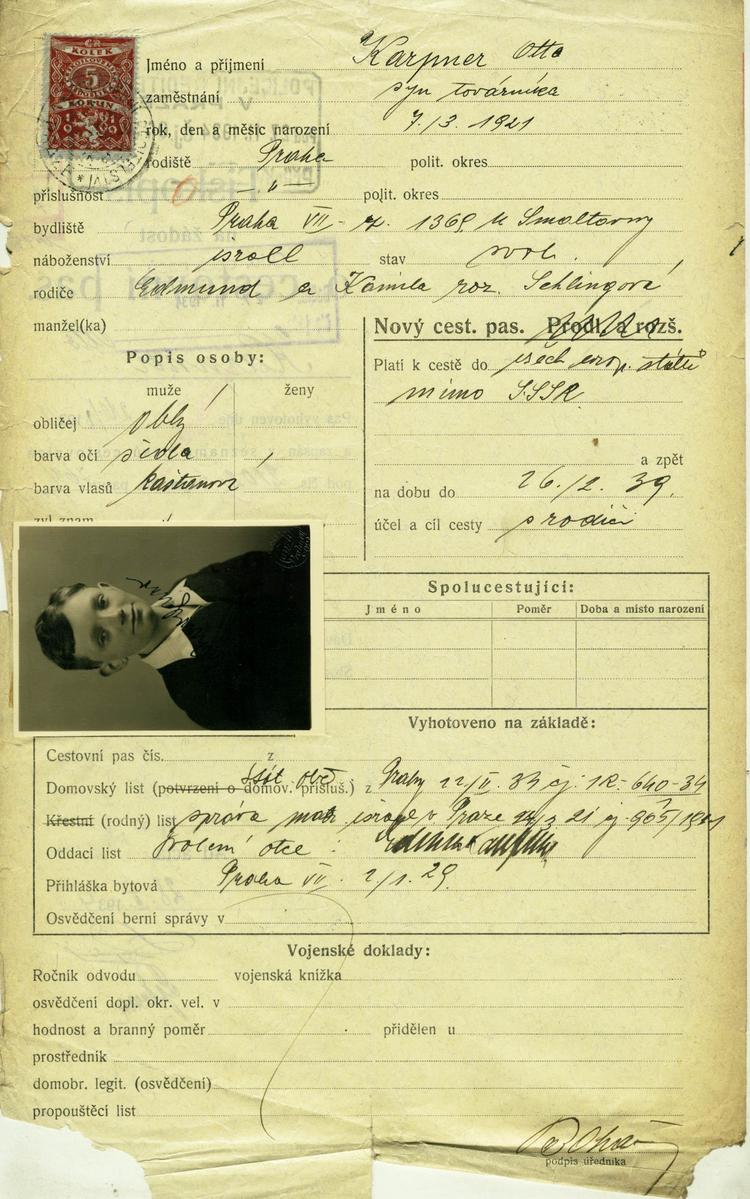 ČR
KOLEK
5
KORUN
Jméno a příjmení Karpner Otto
zaměstnání syn továrníka
rok, den a měsíc narození 7./3. 1921
rodiště Praha polit. okres
příslušnost — " — polit. okres
bydliště Praha VII - 1369 U Smaltovny
náboženství israel stav svob.
rodiče Edmund a Kamila roz. Schlingová
manžel(ka)
Nový cest. pas. Prodl. a rozš.
Popis osoby:
Platí k cestě do všech evrop. států
mimo SSSR
muže ženy
obličej obly
barva očí šedá
barva vlasů kaštanová
zvl. znam.
a zpět
na dobu do 26./2. 39.
účel a cíl cesty s rodiči
Spolucestující:
Jméno Poměr Doba a místo narození
Vyhotoveno na základě:
Cestovní pas čís. z
Domovský list (potvrzení o domov. přísluš.) z Prahy 640-34
Křestní (rodný) list správa mat. v Praze
Oddací list Svolení otce :
Přihláška bytová Praha VII. 2/1. 29.
Osvědčení berní správy v
Vojenské doklady:
Ročník odvodu vojenská knížka
osvědčení dopl. okr. vel. v
hodnost a branný poměr přidělen u
prostředník
domobr. legit. (osvědčení)
propouštěcí list
podpis úředníka